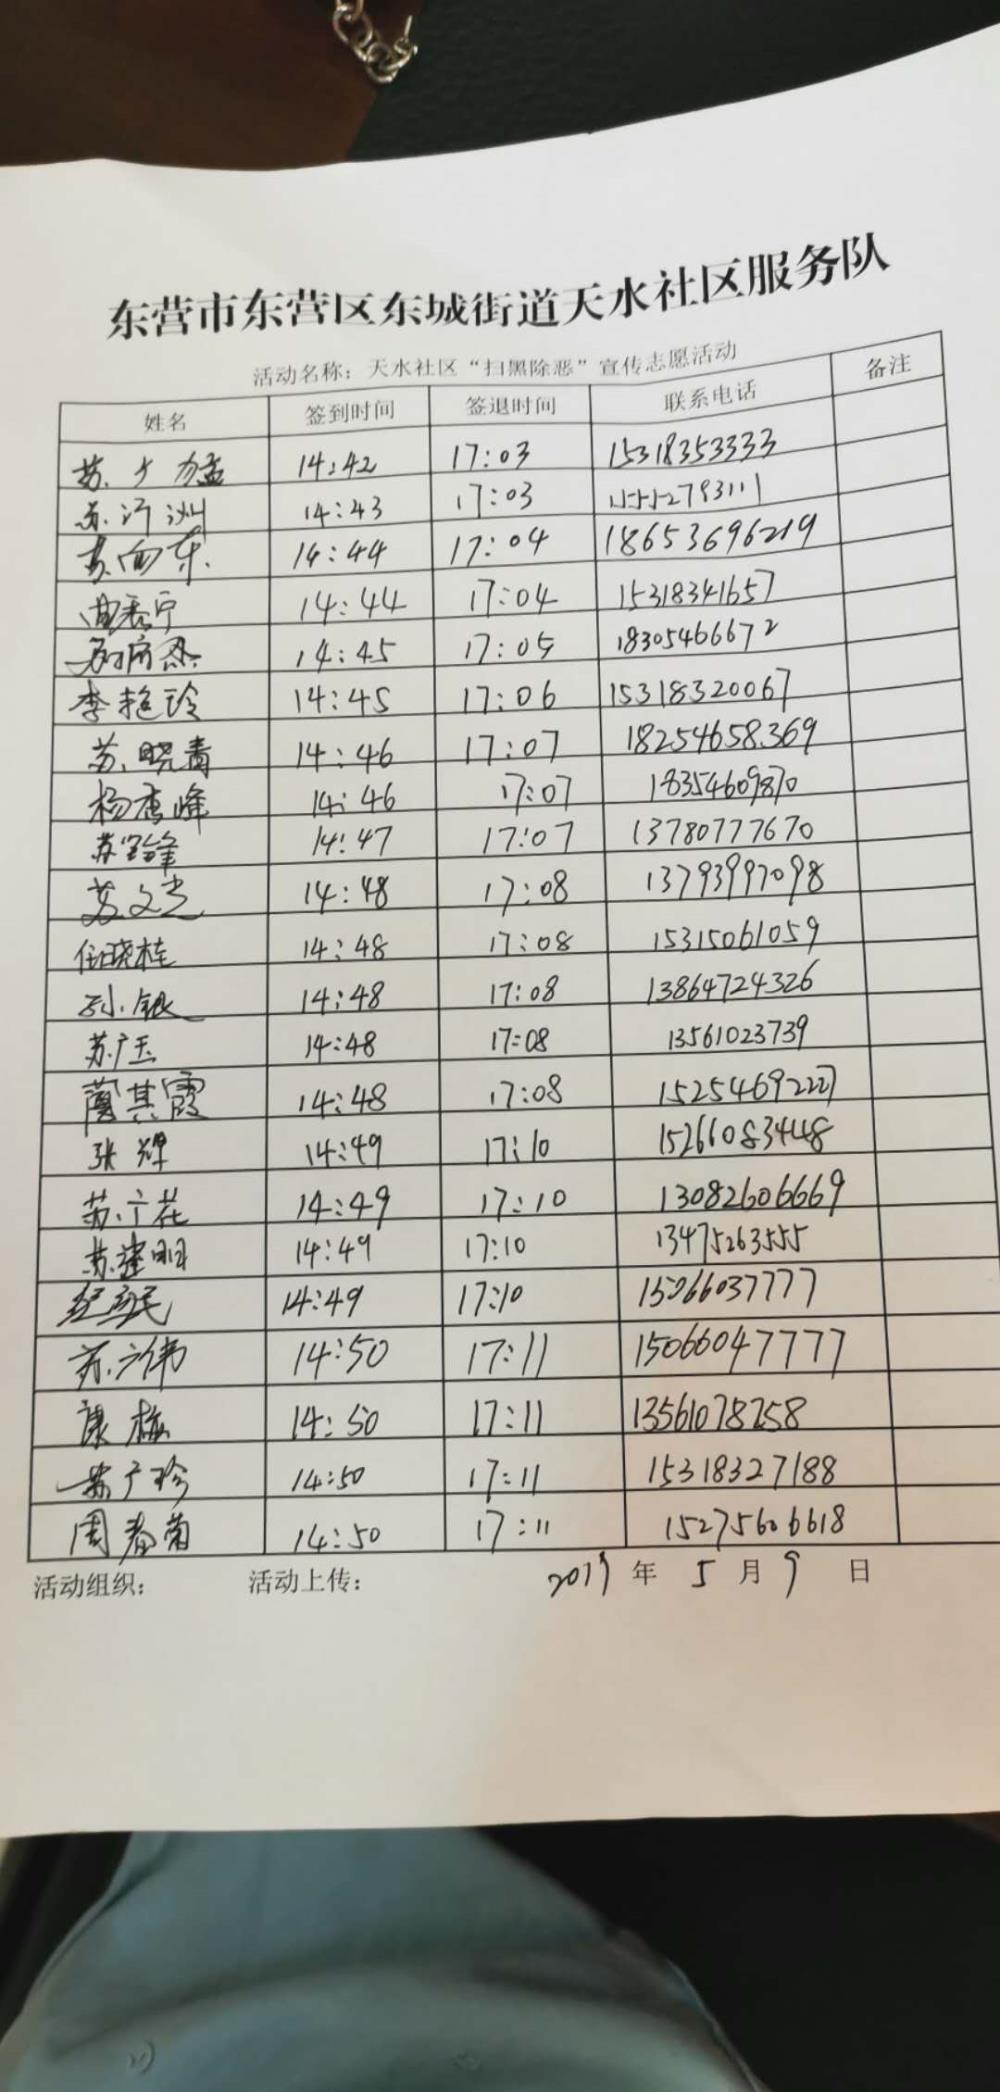 东营市东营区东城街道天水社区服务队
活动名称：天水社区“扫黑除恶”宣传志愿活动
姓名 签到时间 签退时间 联系电话 备注
苏 14:42 17:03 15318353333
苏 14:43 17:03
14:44 17:04 18653696219
曲秀宁 14:44 17:04 15318341657
14:45 17:05 18305466672
李艳玲 14:45 17:06 15318320067
苏晓青 14:46 17:07 18254658369
杨秀峰 14:46 17:07 18354609870
苏 14:47 17:07 13780777670
苏文光 14:48 17:08 13793997098
任晓桂 14:48 17:08 15315061059
孙银 14:48 17:08 13864724326
苏广玉 14:48 17:08 13561023739
蔺其霞 14:48 17:08 15254692227
张辉 14:49 17:10 15266083448
苏广花 14:49 17:10 13082606669
苏建明 14:49 17:10 13475263555
14:49 17:10 15066037777
苏广伟 14:50 17:11 15066047777
康梅 14:50 17:11 13561078258
苏广珍 14:50 17:11 15318327188
周春菊 14:50 17:11 15275606618
活动组织： 活动上传： 2019 年 5 月 9 日